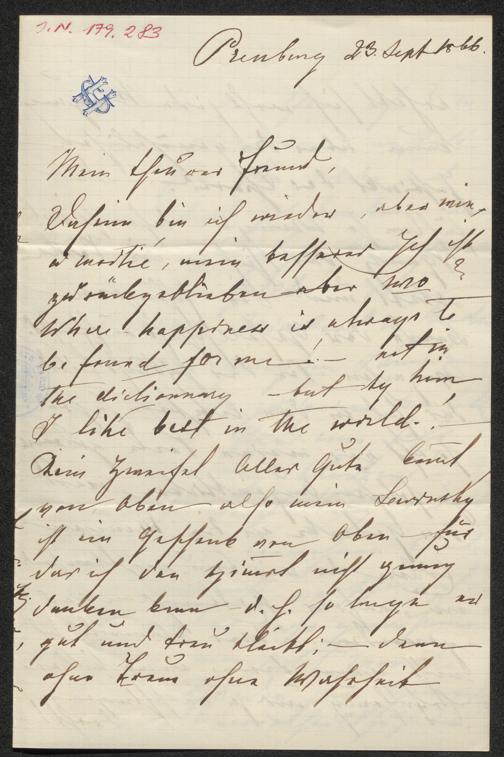 I.N. 179.283
Presburg 23. Sept 1866.
Mein theurer Freund,
Daheim bin ich wieder, aber nur
a moitié, mein besseres Ich ist
zurückgeblieben aber wo?
Where happiness is always to
be found for me! — not in
the dictionnary — but by him
I like best in the world. —
Kein Zweifel alles Gute kommt
von Oben also mein Lewinsky
ist ein Geschenk von Oben für
das ich dem Himmel nicht genug
danken kann d. h. so lange er
gut und treu bleibt; — denn
ohne Treue ohne Wahrheit